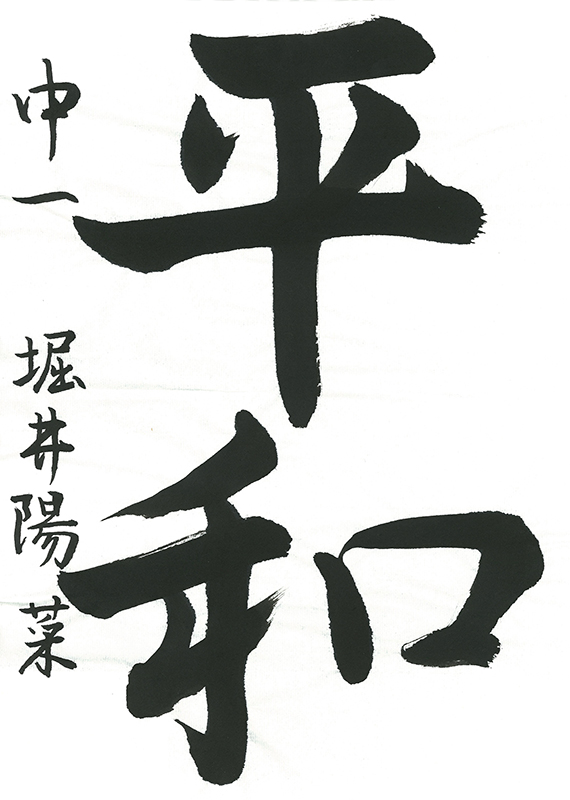 平和
中一 堀井陽菜